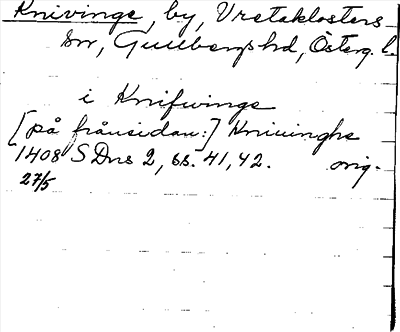 Knivinge, by, Vretaklosters
sn, Gullbergs hd, Österg. l.
i Knifwinge
[på frånsidan:] Kniuinghe
1408 SDns 2, ss. 41, 42. orig.
27/5